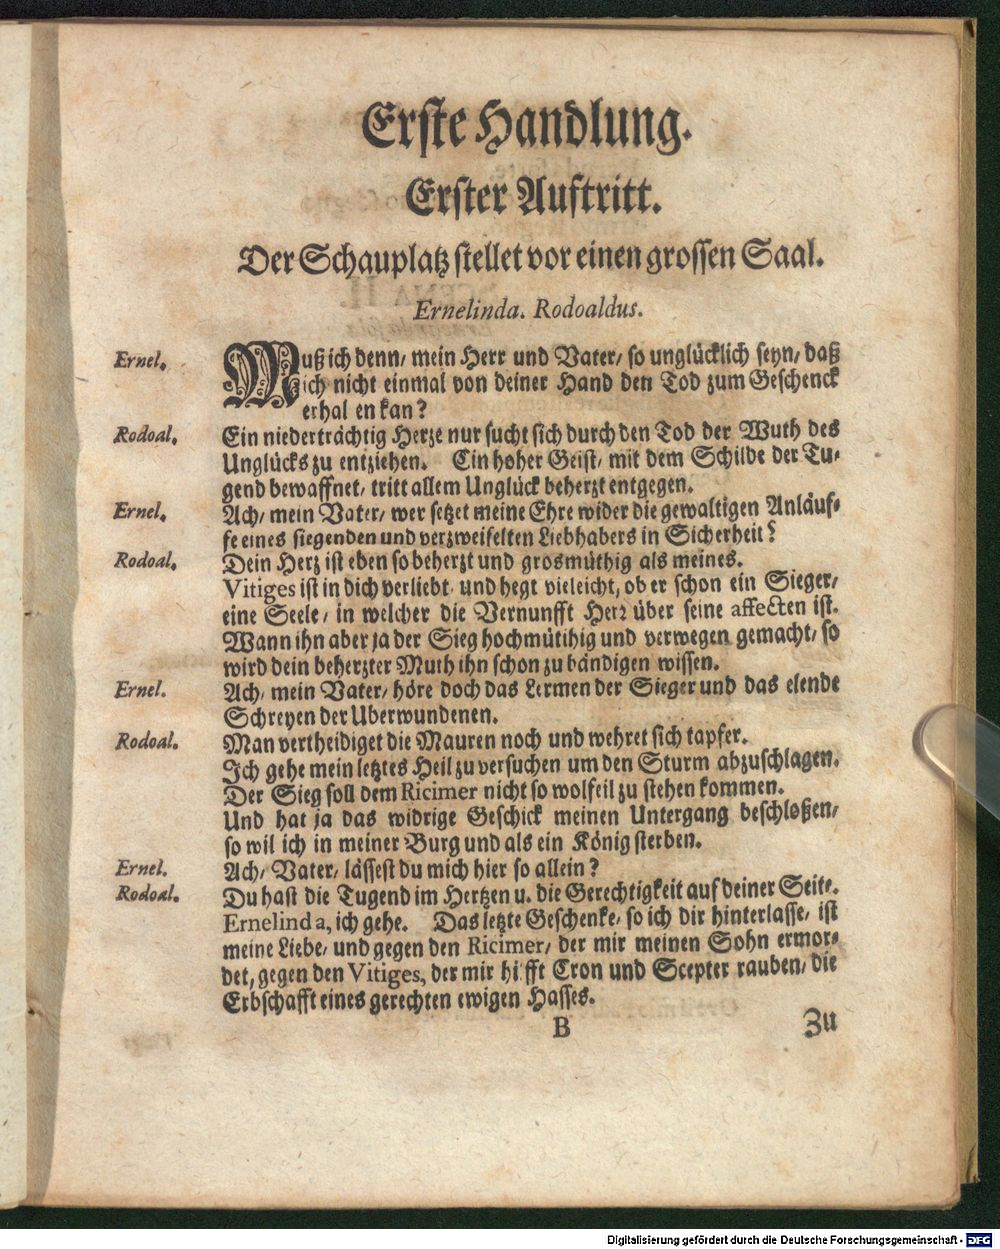 Erste Handlung.
Erster Auftritt.
Der Schauplatz stellet vor einen grossen Saal.
Ernelinda. Rodoaldus.
Ernel. Muß ich denn/ mein Herr und Vater/ so unglücklich seyn/ daß
ich nicht einmal von deiner Hand den Tod zum Geschenck
erhal en kan?
Rodoal. Ein niederträchtig Herze nur sucht sich durch den Tod der Wuth des
Unglücks zu entziehen. Ein hoher Geist/ mit dem Schilde der Tu-
gend bewaffnet/ tritt allem Unglück beherzt entgegen.
Ernel. Ach/ mein Vater/ wer setzet meine Ehre wider die gewaltigen Anläuf-
fe eines siegenden und verzweifelten Liebhabers in Sicherheit?
Rodoal. Dein Herz ist eben so beherzt und grosmüthig als meines.
Vitiges ist in dich verliebt/ und hegt vieleicht, ob er schon ein Sieger/
eine Seele/ in welcher die Vernunfft Herr über seine affecten ist.
Wann ihn aber ja der Sieg hochmütihig und verwegen gemacht/ so
wird dein beherzter Muth ihn schon zu bändigen wissen.
Ernel. Ach/ mein Vater/ höre doch das Lermen der Sieger und das elende
Schreyen der Uberwundenen.
Rodoal. Man vertheidiget die Mauren noch und wehret sich tapfer.
Ich gehe mein letztes Heil zu versuchen um den Sturm abzuschlagen.
Der Sieg soll dem Ricimer nicht so wolfeil zu stehen kommen.
Und hat ja das widrige Geschick meinen Untergang beschloßen/
so wil ich in meiner Burg und als ein König sterben.
Ernel. Ach/ Vater/ lässest du mich hier so allein?
Rodoal. Du hast die Tugend im Hertzen u. die Gerechtigkeit auf deiner Seite.
Ernelinda, ich gehe. Das letzte Geschenke/ so ich dir hinterlasse/ ist
meine Liebe/ und gegen den Ricimer/ der mir meinen Sohn ermor-
det, gegen den Vitiges, der mir hilfft Cron und Scepter rauben/ die
Erbschafft eines gerechten ewigen Hasses.
B Zu
Digitalisierung gefördert durch die Deutsche Forschungsgemeinschaft - DFG